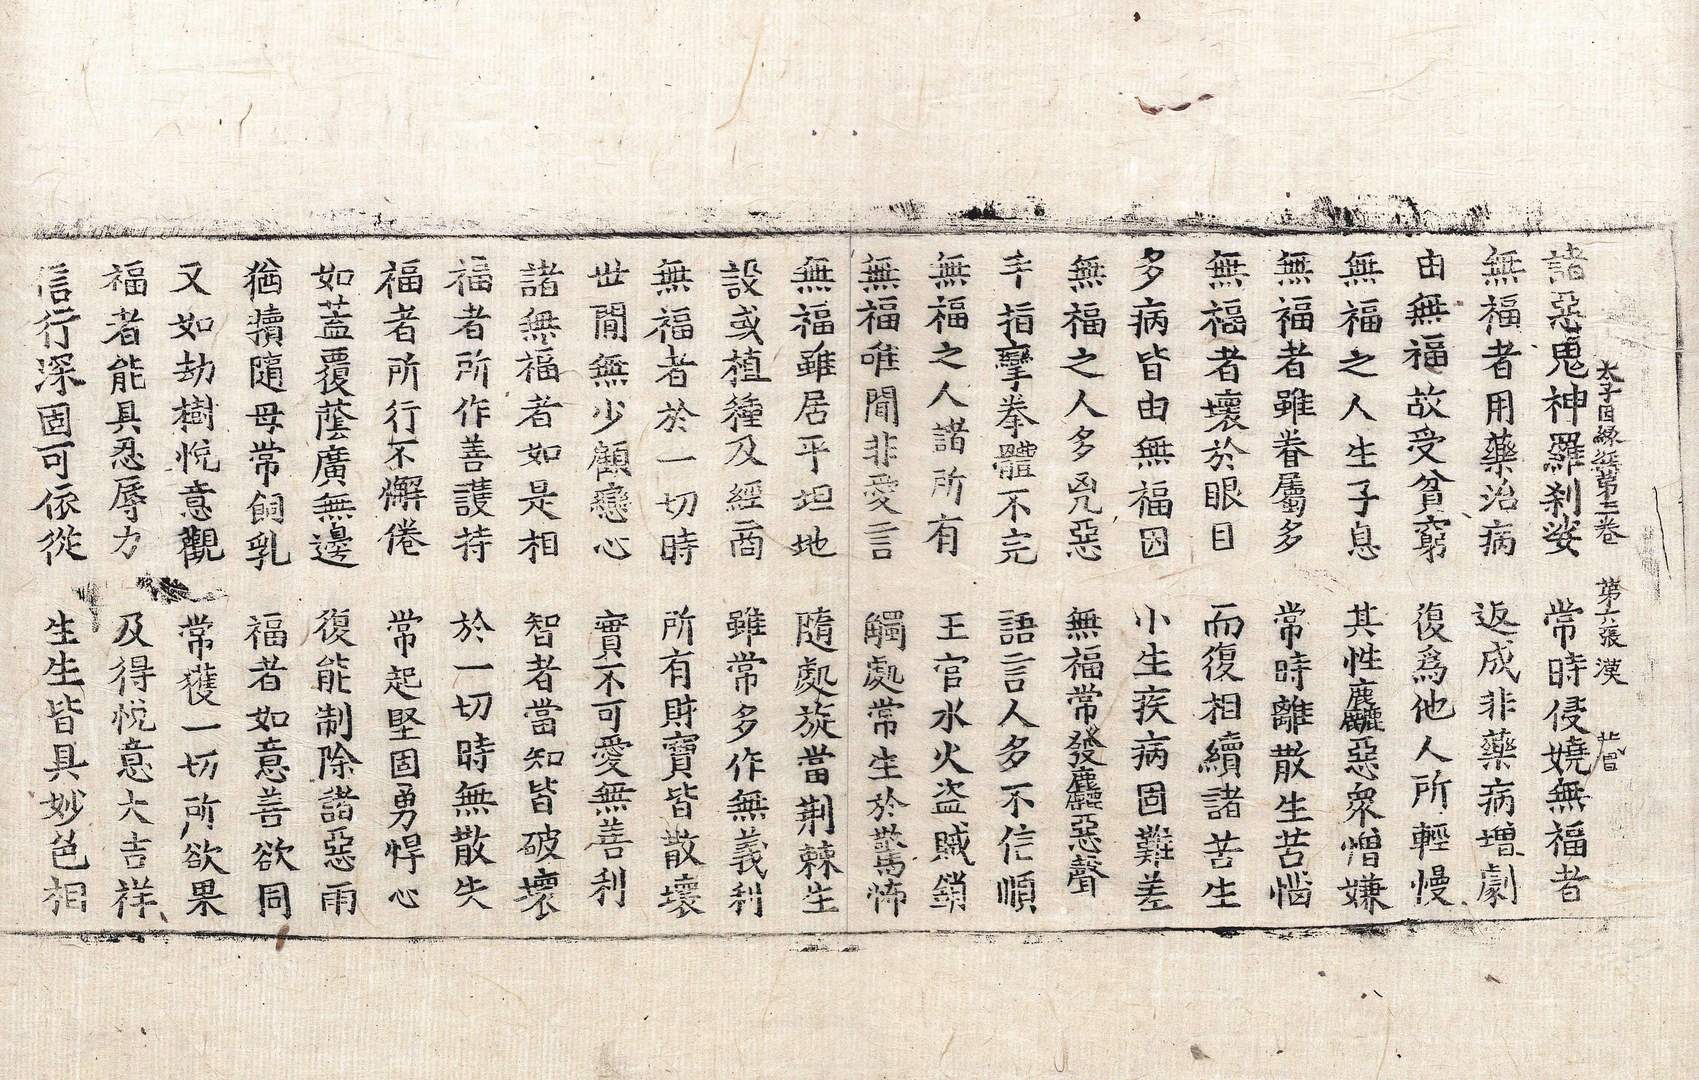 太子因緣經第三卷 第六張 漢
諸惡鬼神羅刹娑 常時侵嬈無福者
無福者用藥治病 返成非藥病增劇
由無福故受貧窮 復爲他人所輕慢
無福之人生子息 其性麤惡衆憎嫌
無福者雖眷屬多 常時離散生苦惱
無福者壞於眼目 而復相續諸苦生
多病皆由無福因 小生疾病固難差
無福之人多兇惡 無福常發麤惡聲
手指攣拳體不完 語言人多不信順
無福之人諸所有 王官水火盜賊銷
無福唯聞非愛言 觸處常生於驚怖
無福雖居平坦地 隨處旋當荆棘生
設或植種及經商 雖常多作無義利
無福者於一切時 所有財寶皆散壞
世間無少顧戀心 實不可愛無善利
諸無福者如是相 智者當知皆破壞
福者所作善護持 於一切時無散失
福者所行不懈倦 常起堅固勇悍心
如蓋覆蔭廣無邊 復能制除諸惡雨
猶犢隨母常飼乳 福者如意善欲同
又如劫樹悅意觀 常獲一切所欲果
福者能具忍辱力 及得悅意大吉祥
信行深固可依從 生生皆具妙色相